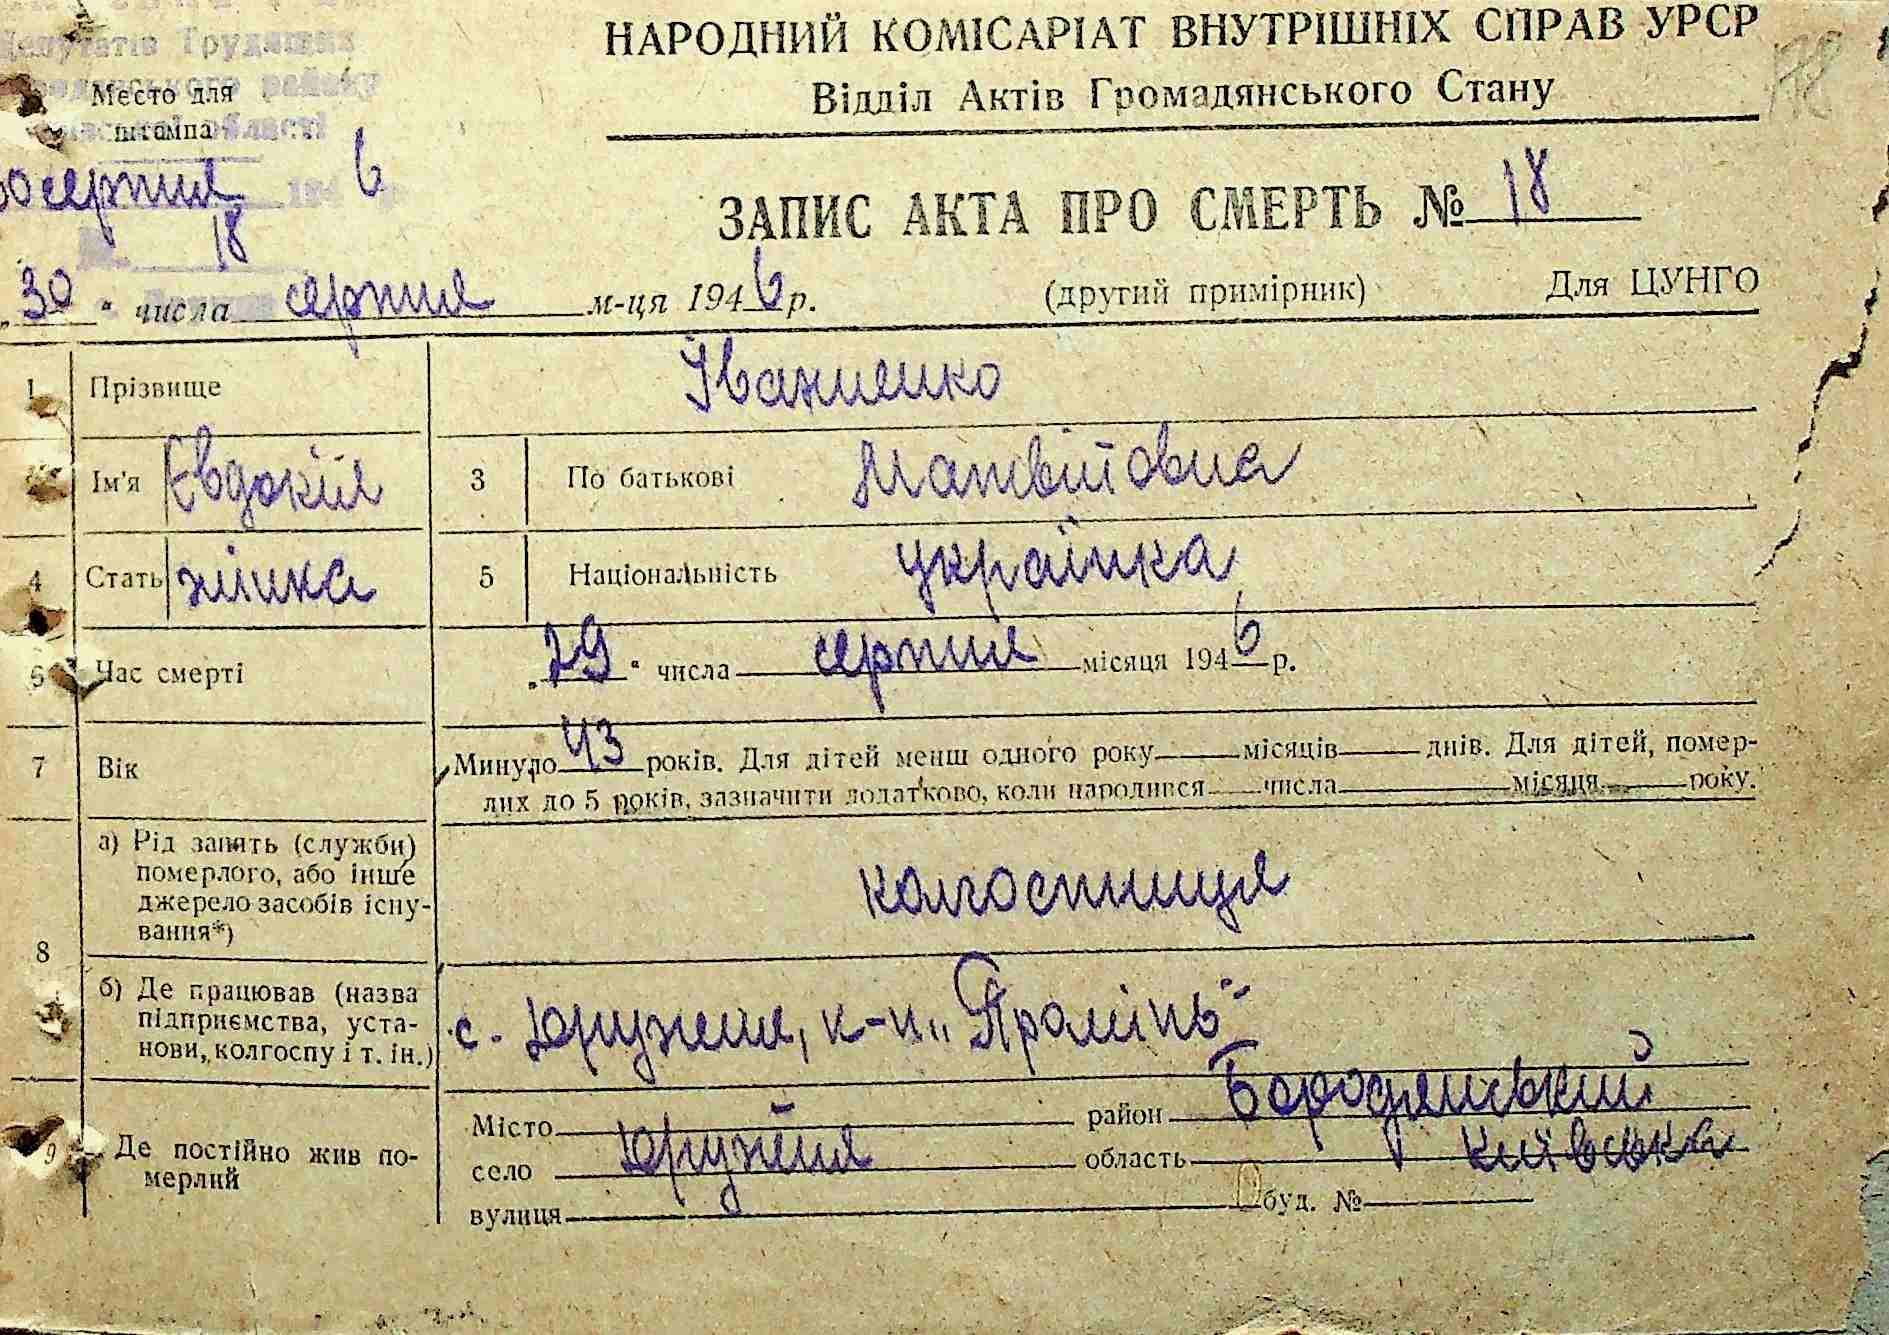 НАРОДНИЙ КОМІСАРІАТ ВНУТРІШНІХ СПРАВ УРСР
Відділ Актів Громадянського Стану
Депутатів Трудящих
району
Место для
штампа
області
30 серпня 194 6 р.
18
ЗАПИС АКТА ПРО СМЕРТЬ № 18
„30“ числа серпня м-ця 1946 р. (другий примірник) Для ЦУНГО
1 Прізвище Іваниенко
Ім'я Евдокія 3 По батькові Матвійовна
4 Стать жінка 5 Національність українка
6 Час смерті „29“ числа серпня місяця 1946 р.
7 Вік Минуло 43 років. Для дітей менш одного року місяців днів. Для дітей, помер-
лих до 5 років, зазначити додатково, коли народився числа місяця року.
8 а) Рід занять (служби) померлого, або інше джерело засобів існу-вання*) колгоспниця
б) Де працював (назва підприємства, уста-нови, колгоспу і т. ін.) с. Дружня, к-п „Промінь"
9 Де постійно жив по-мерлий
Місто район Бородянський
село Дружня область Київська
вулиця буд. №